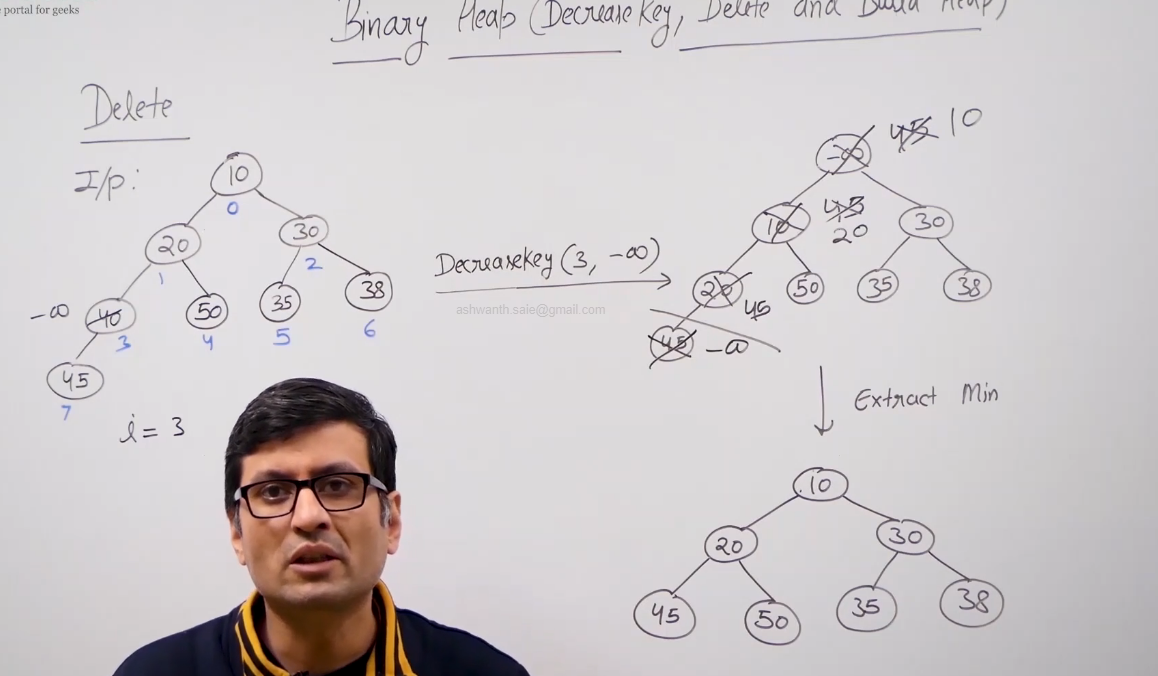 portal for geeks
Binary Heap (Decrease Key, Delete and Build Heap)
Delete
I/p:
10
0
20
1
30
2
-∞ 40
3
50
4
35
5
38
6
45
7
i = 3
Decreasekey (3, -∞)
ashwanth.saie@gmail.com
-∞ 45 10
10 45
20
30
20 45
50
35
38
45 -∞
Extract Min
10
20
30
45
50
35
38